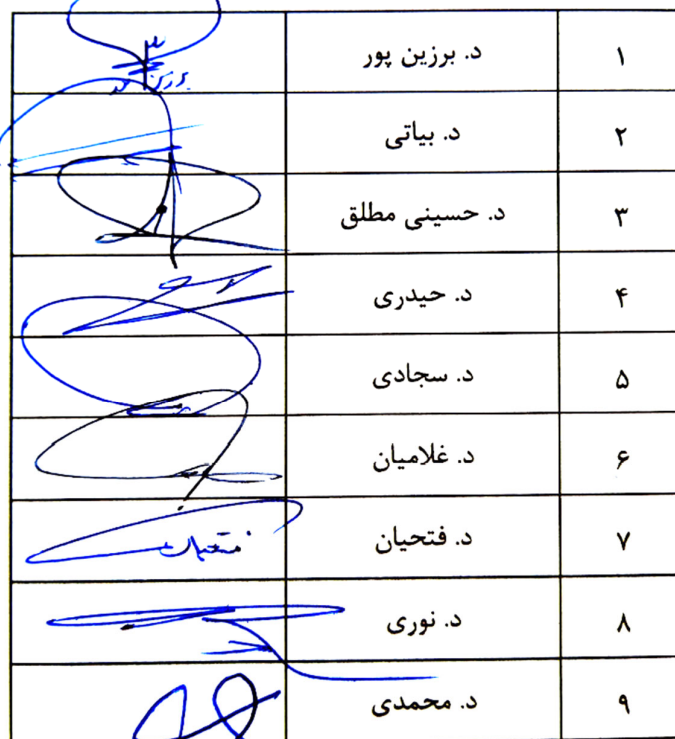 ۱ د. برزین پور
۲ د. بیاتی
۳ د. حسینی مطلق
۴ د. حیدری
۵ د. سجادی
۶ د. غلامیان
۷ د. فتحیان فتحیان
۸ د. نوری
۹ د. محمدی